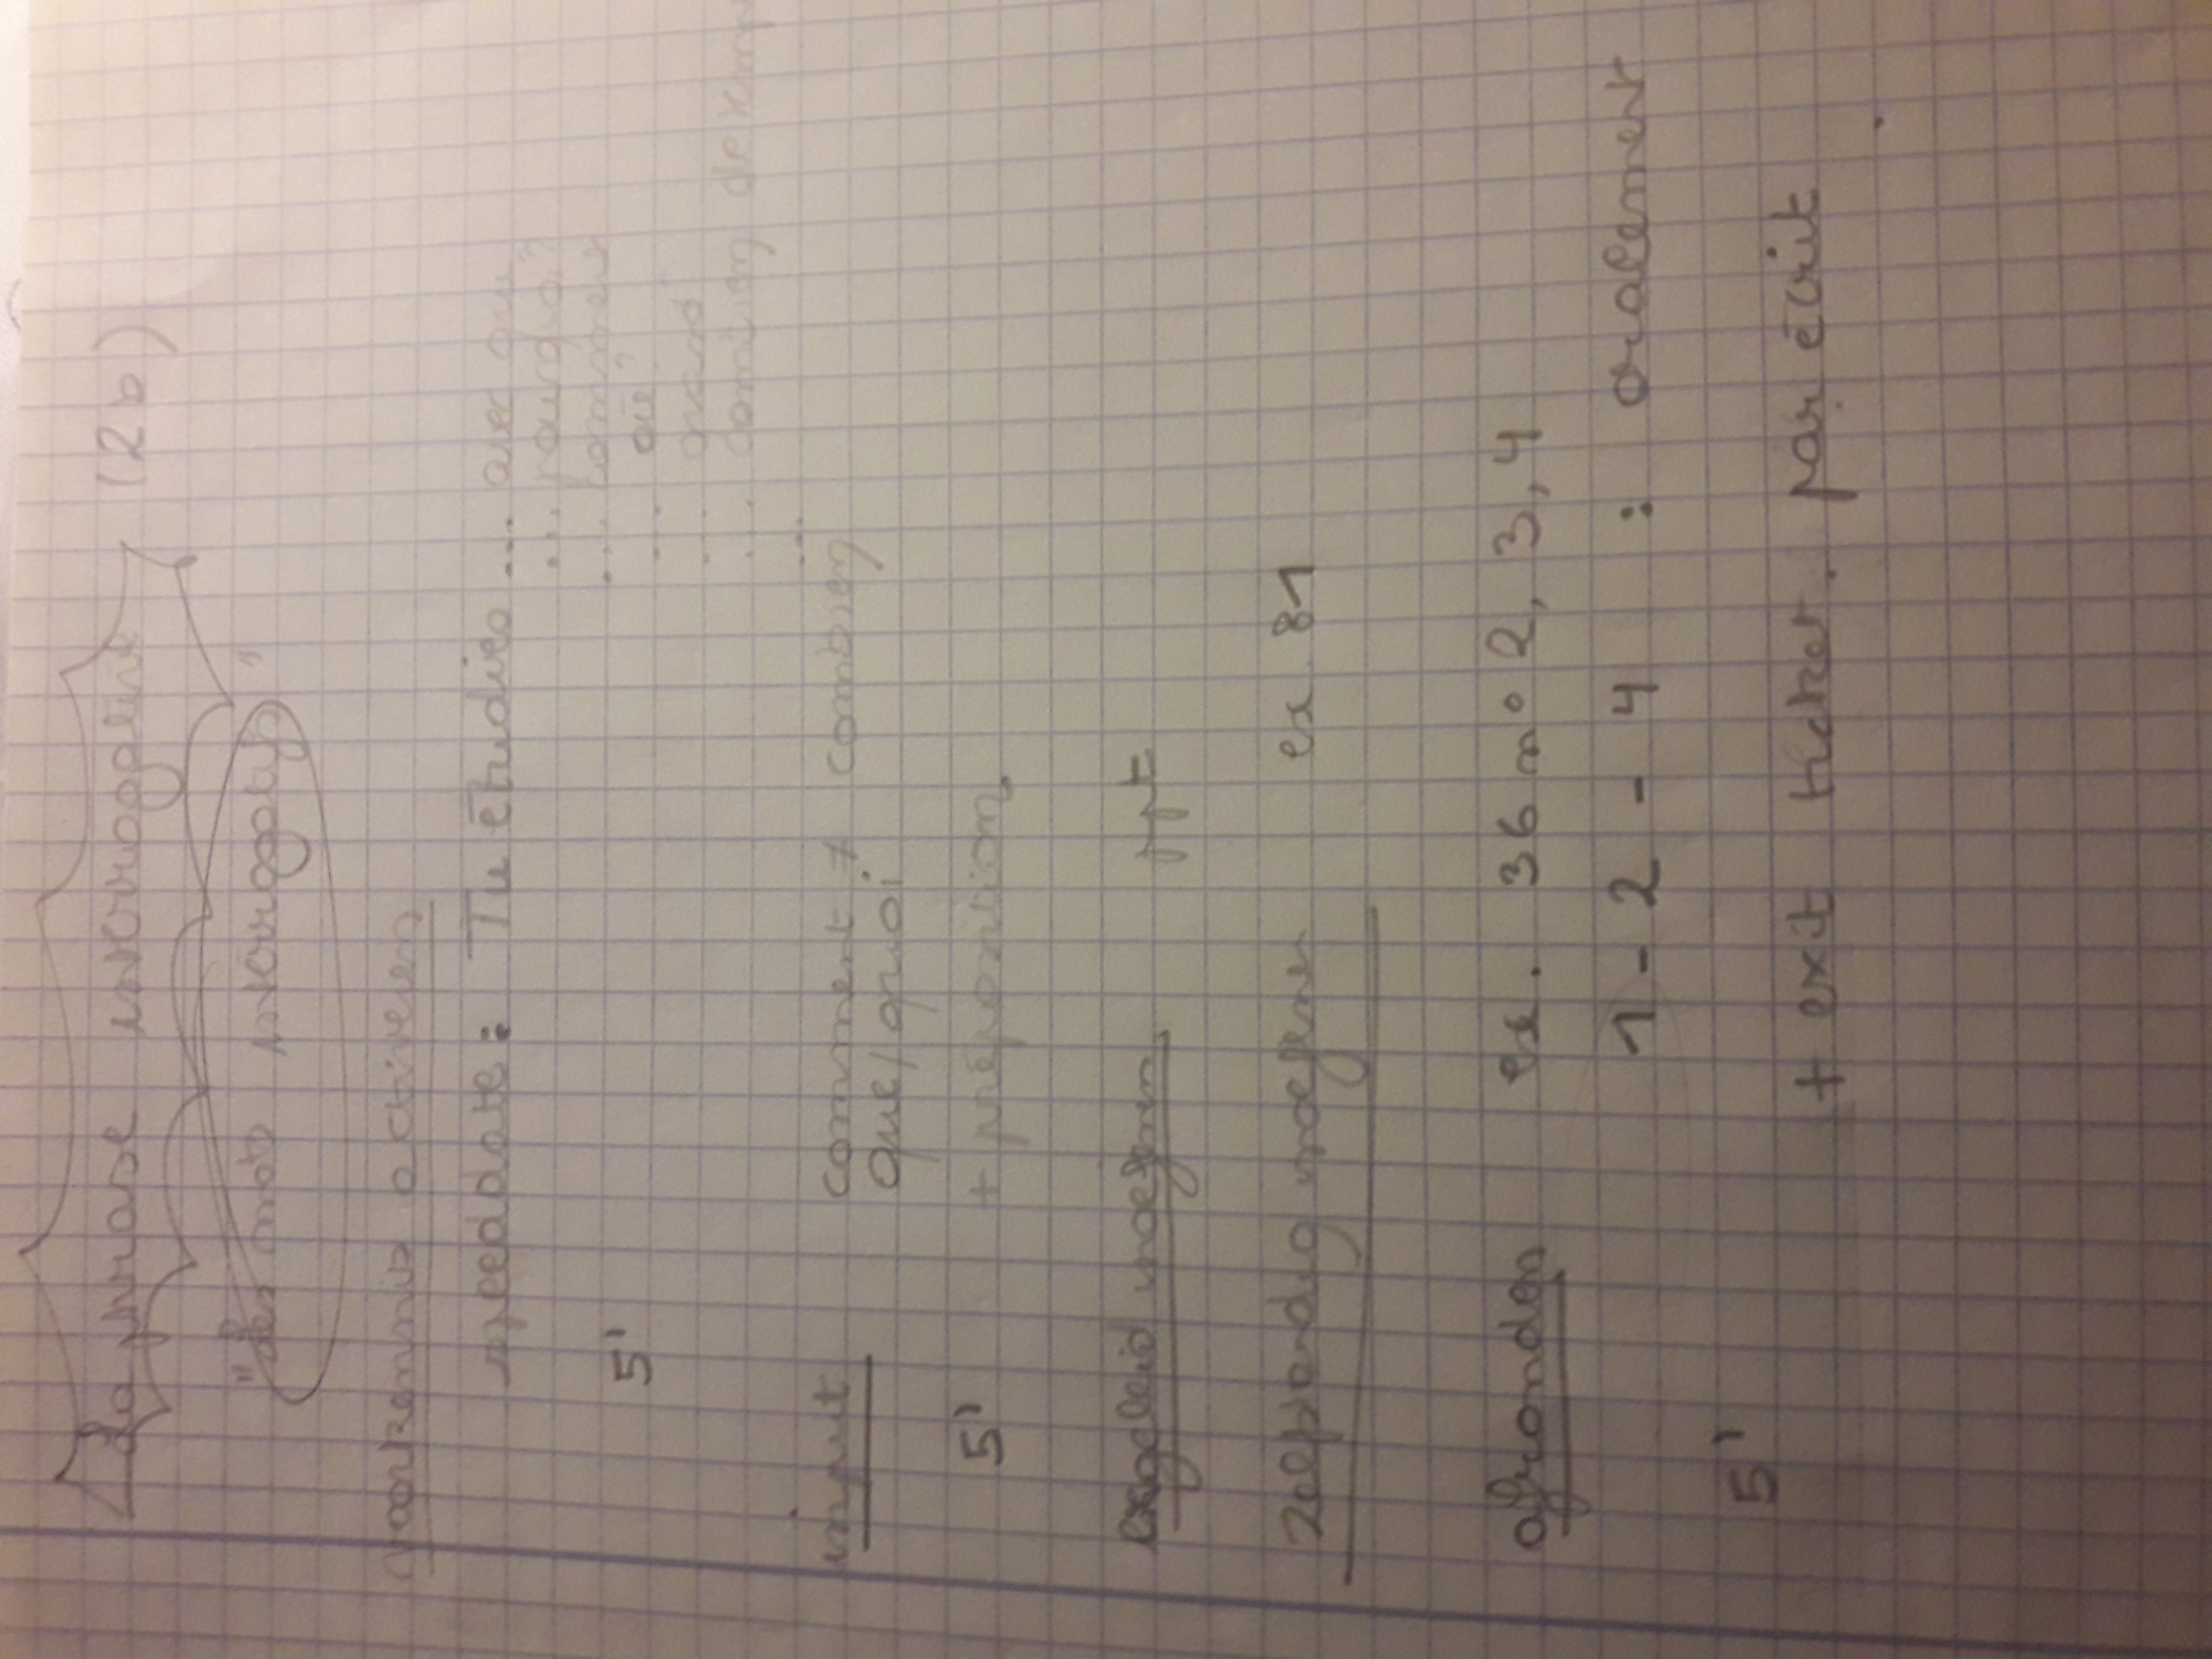 La phrase interrogative (2b)
"les mots interrogatifs"
voorkennis activeren
speeddate: Tu étudies ... avec qui
... pourquoi?
... comment
... où?
... quand
... combien d'exam
...
5'
input comment ≠ combien
que/quoi
5' + préposition
begeleid inoefenen ppt
zelfstandig inoefenen ex 81
afronden ex. 36 n° 2, 3, 4
1 - 2 - 4 : oralement
5'
+ exit ticket. par écrit.